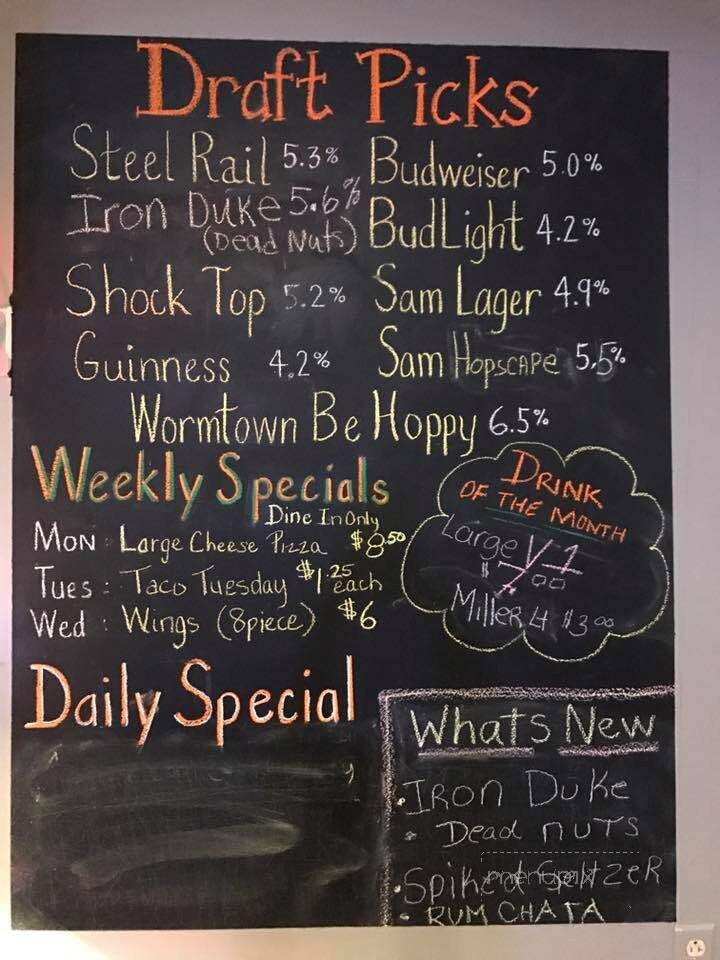 Draft Picks
Steel Rail 5.3%
Iron Duke 5.6%
(Dead Nuts)
Shock Top 5.2%
Guinness 4.2%
Budweiser 5.0%
Bud Light 4.2%
Sam Lager 4.9%
Sam Hopscape 5.5%
Wormtown Be Hoppy 6.5%
Weekly Specials
Dine In Only
Mon : Large Cheese Pizza $8.50
Tues : Taco Tuesday $1.25 each
Wed : Wings (8piece) $6
DRINK
OF THE MONTH
Large V1
$7.00
Miller 4 $3.00
Daily Special
Whats New
• IRON DUKE
• Dead nuts
• Spiked Seltzer
• RUM CHATA
menupix